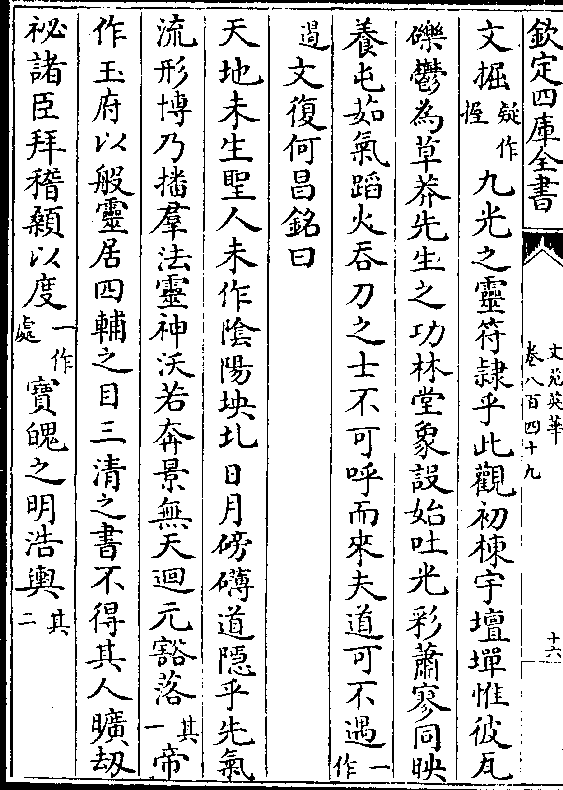 欽定四庫全書
文苑英華
卷八百四十九
十六
文握疑作幄九光之靈符隷乎此觀初棟宇壇墠惟彼瓦
礫鬱為草莽先生之功林堂象設始吐光彩蕭寥同映
養屯茹氣蹈火吞刀之士不可呼而來夫道可不遇一作
過文復何昌銘曰
天地未生聖人未作陰陽坱圠日月磅礴道隱乎先氣
流形博乃播羣法靈神沃若奔景無天迴元豁落其一帝
作玉府以般靈居四輔之目三清之書不得其人曠刧
祕諸臣拜稽顙以度一作處寶魄之明浩輿其二